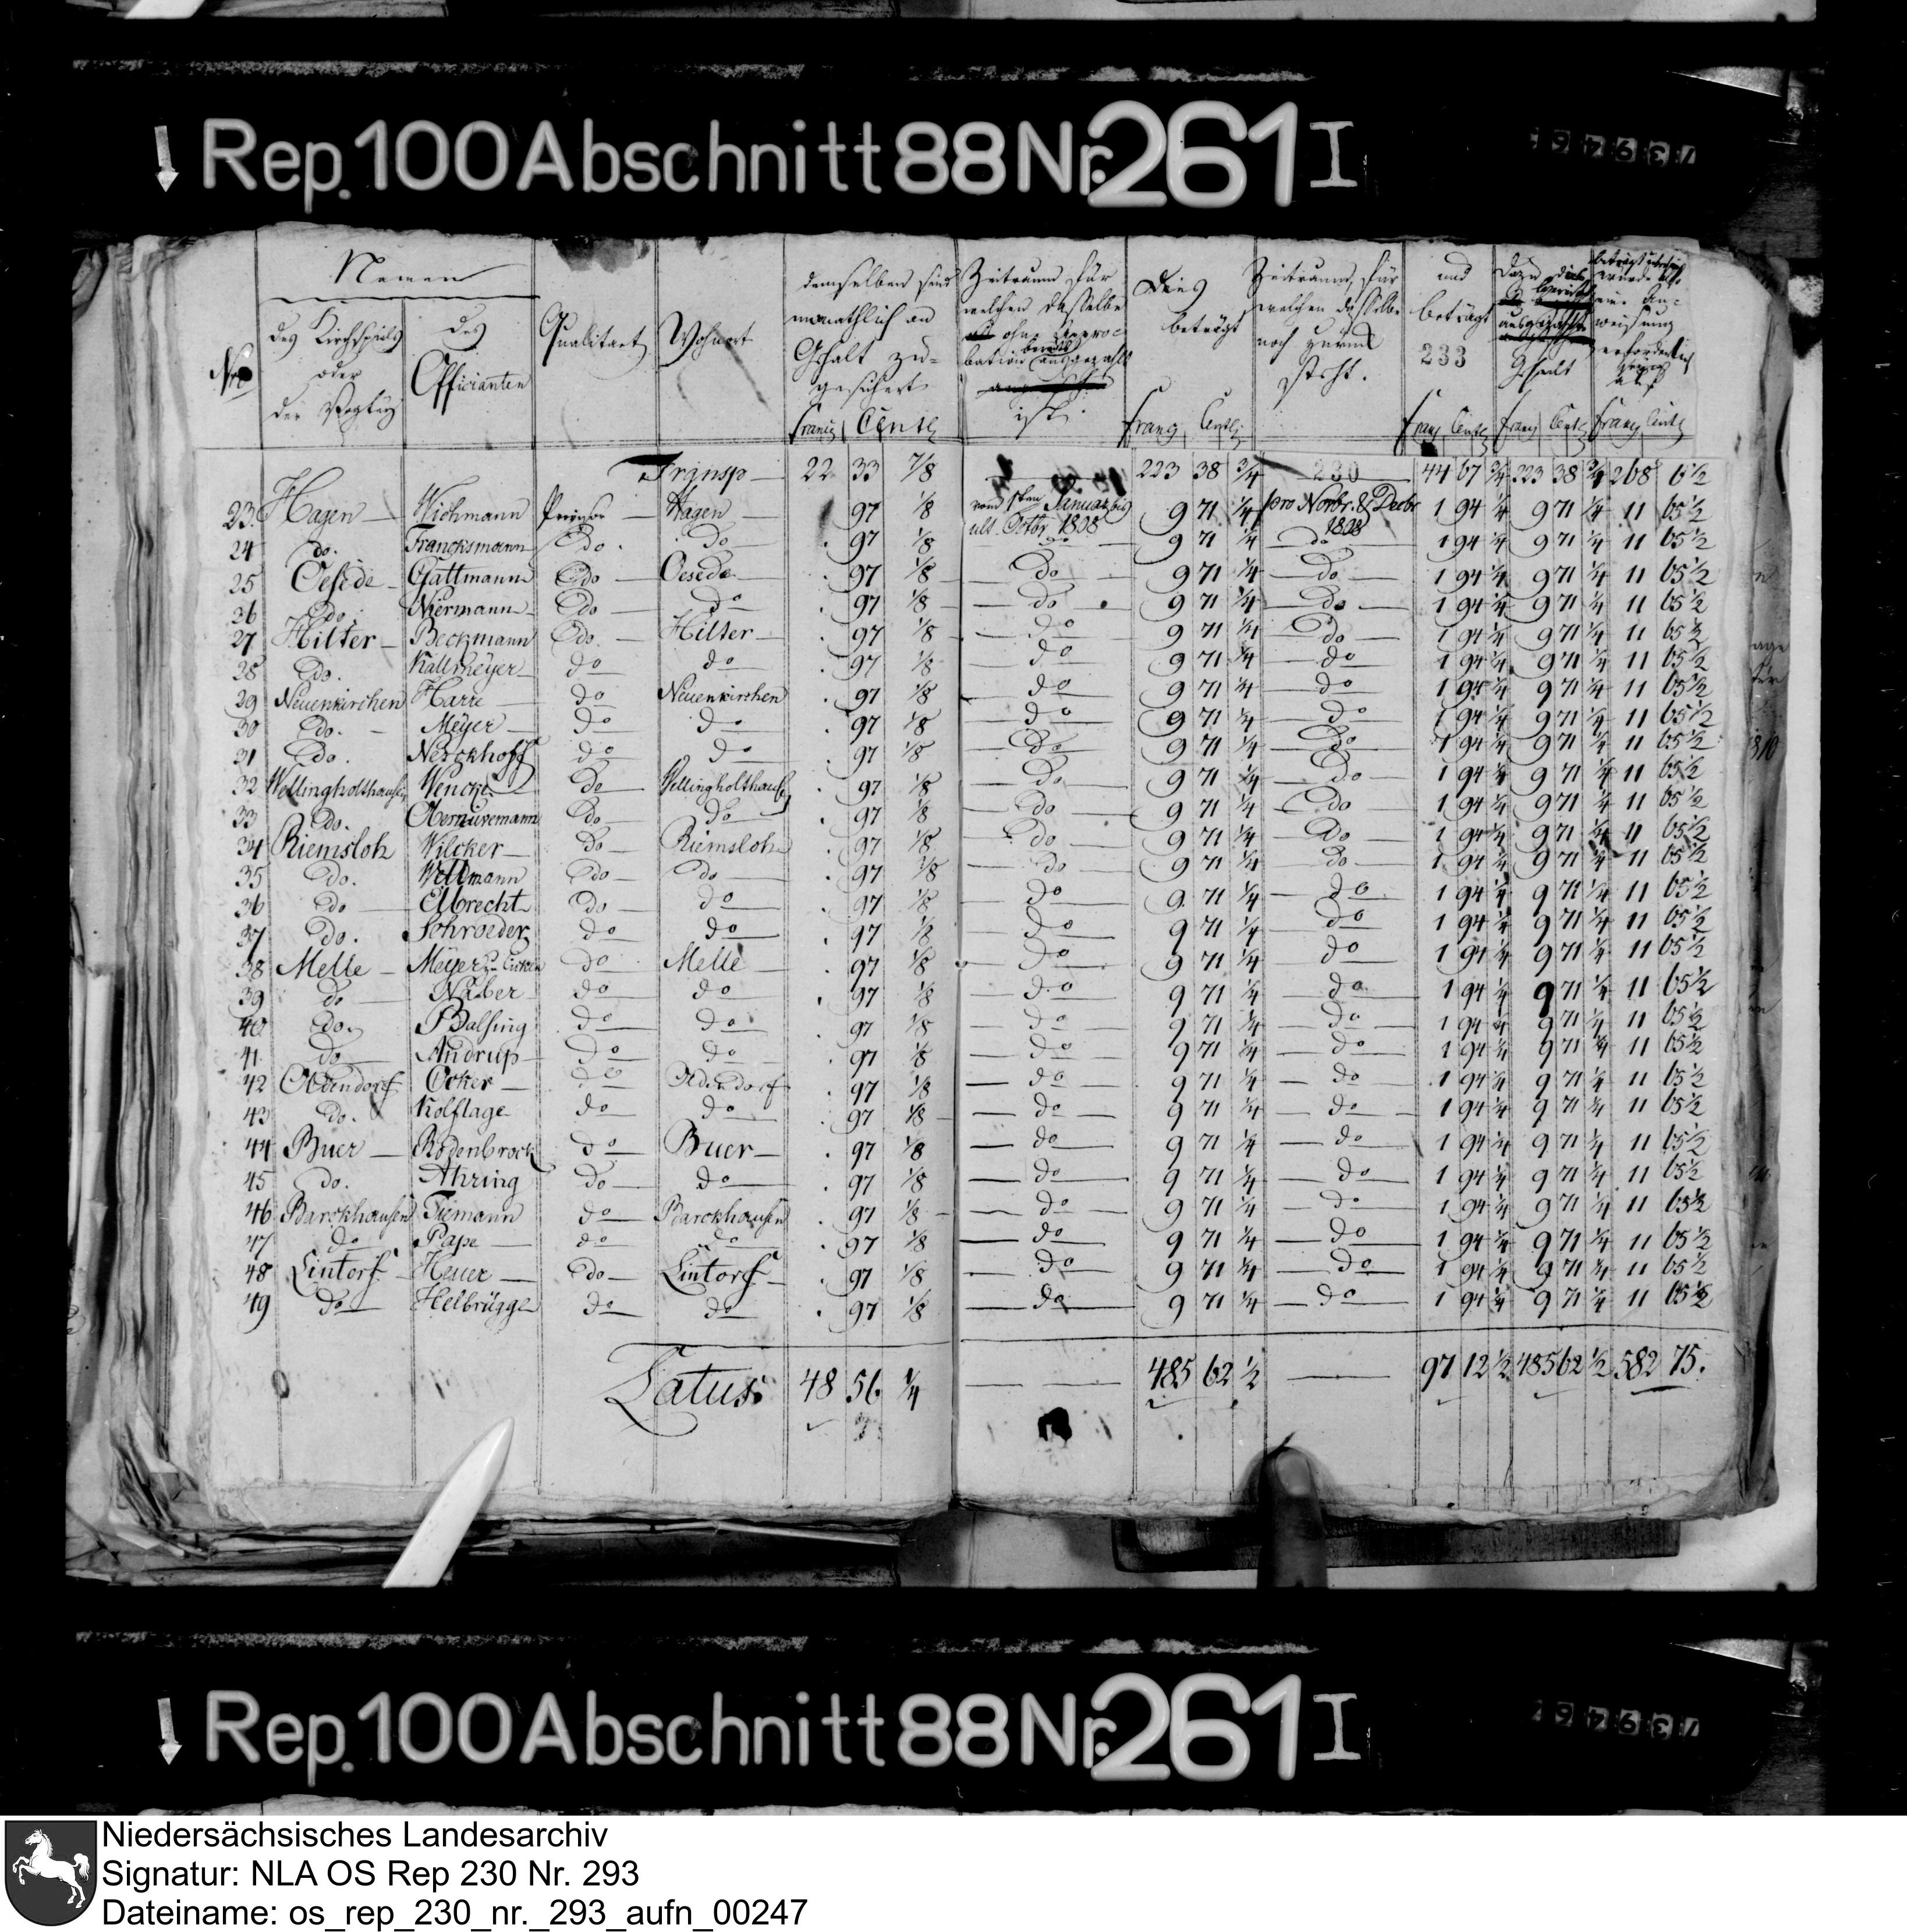 Rep. 100 Abschnitt 88 Nr. 261 I
Namen
des Kirchspiels oder der Vogtey
des Officianten
Qualitaet
Wohnort
demselben sind monathlich an Gehalt zu-gesichert
Zeitraum für welchen dasselbe ohne Approbation bereits ausgezahlt ist.
Dies beträgt
Zeitraum, für welchen dasselbe noch zurück steht.
und beträgt
233
Gehalt
Franz Cents Franz Cents Franz Cents Franz Cents Franz Cents
Transp 22 33 7/8 — 223 38 3/4 230 44 67 3/4 223 38 3/4 268 6 1/2
23. Hagen Wichmann Hagen 97 1/8 vom 1ten Januar bis ult. Octbr 1808 9 71 1/4 pro Novbr. & Decbr 1808 1 94 1/4 9 71 1/4 11 65 1/2
24 do. Francksmann do. do 97 1/8 do 9 71 1/4 do 1 94 1/4 9 71 1/4 11 65 1/2
25 Oesede Gattmann do Oesede 97 1/8 do 9 71 1/4 do 1 94 1/4 9 71 1/4 11 65 1/2
26 do. Niermann do do 97 1/8 do 9 71 1/4 do 1 94 1/4 9 71 1/4 11 65 1/2
27 Hilter Beckmann do. Hilter 97 1/8 do 9 71 1/4 do 1 94 1/4 9 71 1/4 11 65 1/2
28 do. Kallmeyer do do 97 1/8 do 9 71 1/4 do 1 94 1/4 9 71 1/4 11 65 1/2
29 Neuenkirchen Harre do Neuenkirchen 97 1/8 do 9 71 1/4 do 1 94 1/4 9 71 1/4 11 65 1/2
30 do. Meyer do do 97 1/8 do 9 71 1/4 do 1 94 1/4 9 71 1/4 11 65 1/2
31 do. Nerckhoff do do 97 1/8 do 9 71 1/4 do 1 94 1/4 9 71 1/4 11 65 1/2
32 Wellingholthausen Wencke do Wellingholthausen 97 1/8 do 9 71 1/4 do 1 94 1/4 9 71 1/4 11 65 1/2
33 do. do do 97 1/8 do 9 71 1/4 do 1 94 1/4 9 71 1/4 11 65 1/2
34 Riemsloh Wilcker do Riemsloh 97 1/8 do 9 71 1/4 do 1 94 1/4 9 71 1/4 11 65 1/2
35 do. Wellmann do do 97 1/8 do 9 71 1/4 do 1 94 1/4 9 71 1/4 11 65 1/2
36 do Elbrecht do do 97 1/8 do 9 71 1/4 do 1 94 1/4 9 71 1/4 11 65 1/2
37 do. Schroeder do do 97 1/8 do 9 71 1/4 do 1 94 1/4 9 71 1/4 11 65 1/2
38 Melle Meyer do Melle 97 1/8 do 9 71 1/4 do 1 94 1/4 9 71 1/4 11 65 1/2
39 do Näber do do 97 1/8 do 9 71 1/4 do 1 94 1/4 9 71 1/4 11 65 1/2
40 do. Balsing do do 97 1/8 do 9 71 1/4 do 1 94 1/4 9 71 1/4 11 65 1/2
41 do Andrup do do 97 1/8 do 9 71 1/4 do 1 94 1/4 9 71 1/4 11 65 1/2
42 Oldendorf Ocker do Oldendorf 97 1/8 do 9 71 1/4 do 1 94 1/4 9 71 1/4 11 65 1/2
43 do. Kolflage do do 97 1/8 do 9 71 1/4 do 1 94 1/4 9 71 1/4 11 65 1/2
44 Buer Rodenbrock do Buer 97 1/8 do 9 71 1/4 do 1 94 1/4 9 71 1/4 11 65 1/2
45 do. Ahring do do 97 1/8 do 9 71 1/4 do 1 94 1/4 9 71 1/4 11 65 1/2
46 Barckhausen Tiemann do Barckhausen 97 1/8 do 9 71 1/4 do 1 94 1/4 9 71 1/4 11 65 1/2
47 do Pape do do 97 1/8 do 9 71 1/4 do 1 94 1/4 9 71 1/4 11 65 1/2
48 Lintorf Heuer do Lintorf 97 1/8 do 9 71 1/4 do 1 94 1/4 9 71 1/4 11 65 1/2
49 do Helbrügge do do 97 1/8 do 9 71 1/4 do 1 94 1/4 9 71 1/4 11 65 1/2
Latus 48 56 1/4 — 485 62 1/2 — 97 12 1/2 485 62 1/2 582 75.
Rep. 100 Abschnitt 88 Nr. 261 I
Niedersächsisches Landesarchiv
Signatur: NLA OS Rep 230 Nr. 293
Dateiname: os_rep_230_nr._293_aufn_00247